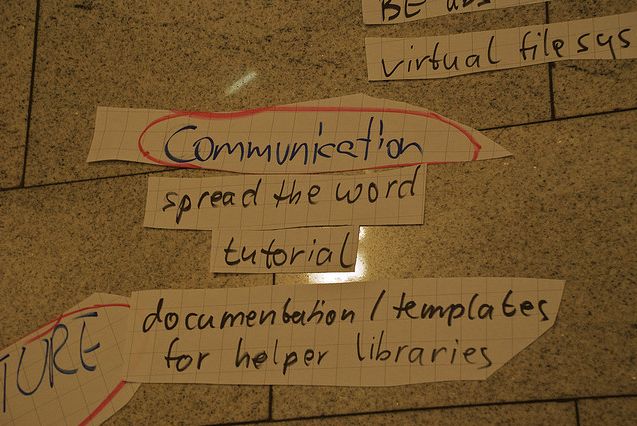 BE
virtual filesys
Communication
spread the word
tutorial
documentation / templates
for helper libraries
TURE